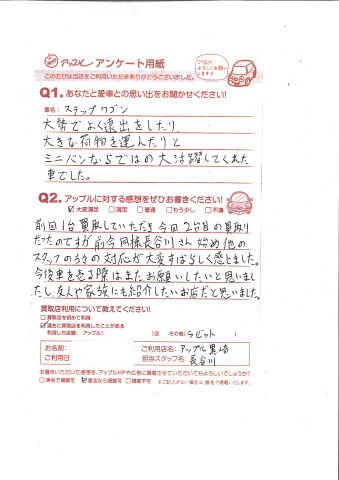 アップル アンケート用紙
ご協力よろしくお願いします♪
このたびは当店をご利用いただきありがとうございました。
Q1. あなたと愛車との思い出をお聞かせください!
車名: ステップワゴン
大勢でよく遠出をしたり、
大きな荷物を運んだりと
ミニバンならではの大活躍してくれた
車でした。
Q2. アップルに対する感想をぜひお書きください!
☑大変満足 □満足 □普通 □もう少し □不満
前回1台買取していただき今回2台目の買取り
だったのですが前今同様長谷川さん始め他の
スタッフの方々の対応が大変すばらしく感じました。
今後車を売る際はまたお願いしたいと思いまし
たし、友人や家族にも紹介したいお店だと思いました。
買取店利用について教えてください!
□買取店を初めて利用
☑過去に買取店を利用したことがある
利用した店舗: アップル( )店 その他(ラビット)
お名前:
ご利用日
ご利用店名: アップル黒崎
担当スタッフ名: 長谷川
お書きいただいた感想を、アップルHPや広告に掲載させていただいてもよろしいでしょうか?
□実名で掲載可 ☑匿名なら掲載可 □掲載不可 ※ご記入がない場合は、匿名で掲載いたします。